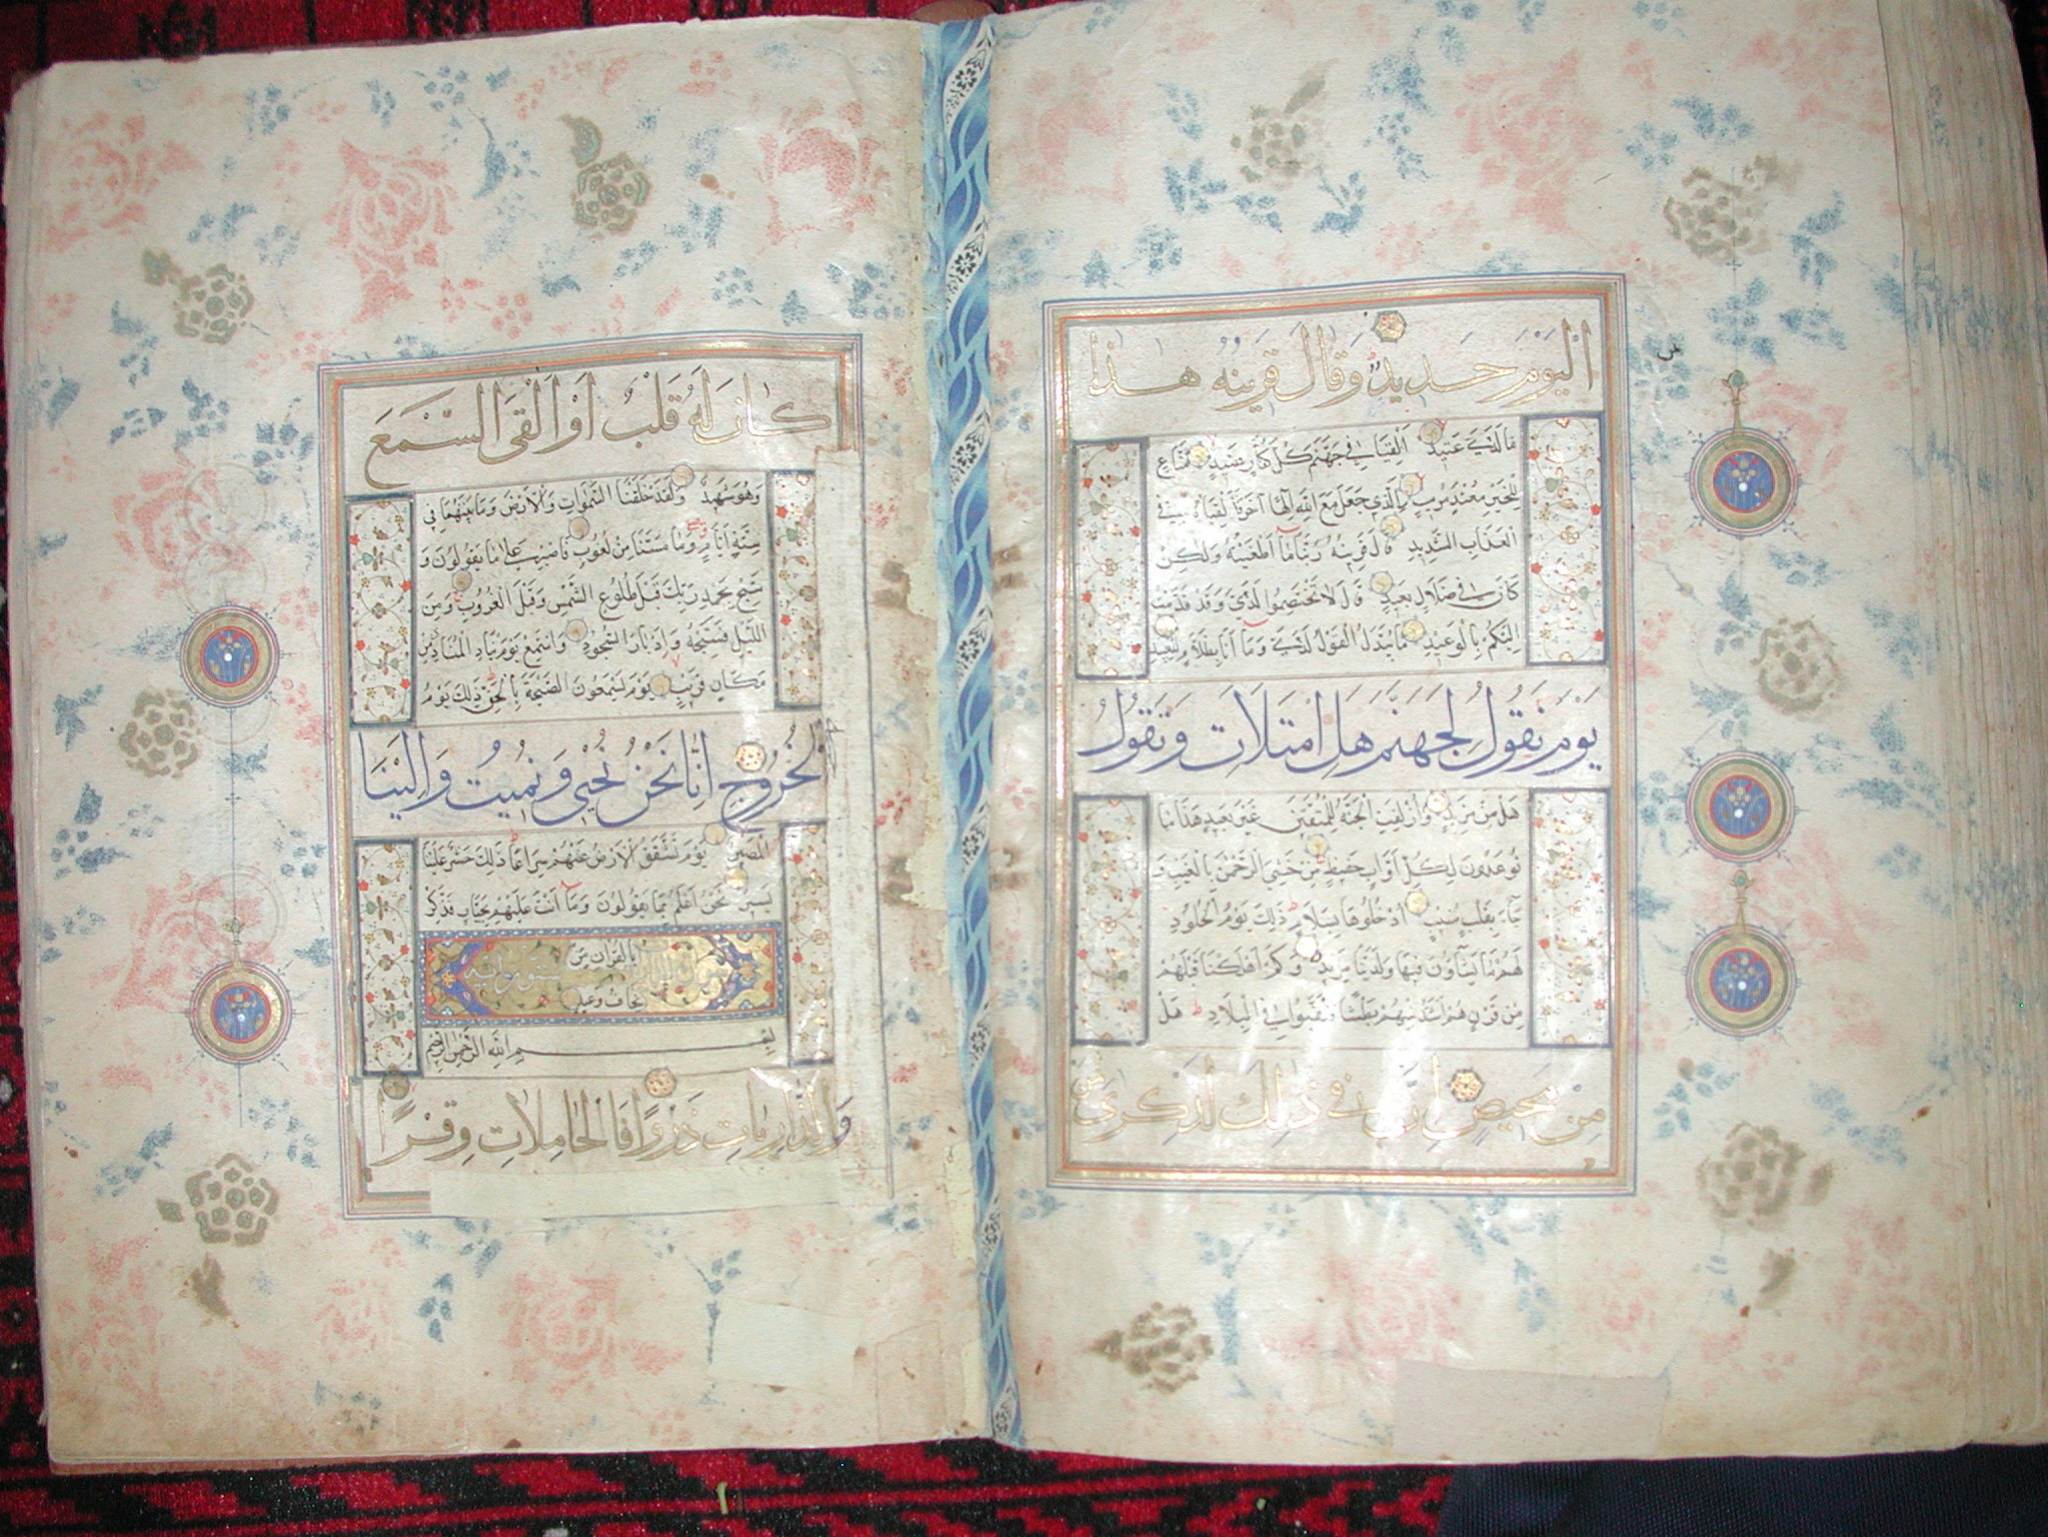 الْيَوْمَ حَدِيدٌ وَقَالَ قَرِينُهُ هَذَا
مَا لَدَيَّ عَتِيدٌ أَلْقِيَا فِي جَهَنَّمَ كُلَّ كَفَّارٍ عَنِيدٍ مَنَّاعٍ
لِلْخَيْرِ مُعْتَدٍ مُرِيبٍ الَّذِي جَعَلَ مَعَ اللَّهِ إِلَهًا آخَرَ فَأَلْقِيَاهُ فِي
الْعَذَابِ الشَّدِيدِ قَالَ قَرِينُهُ رَبَّنَا مَا أَطْغَيْتُهُ وَلَكِنْ
كَانَ فِي ضَلَالٍ بَعِيدٍ قَالَ لَا تَخْتَصِمُوا لَدَيَّ وَقَدْ قَدَّمْتُ
إِلَيْكُمْ بِالْوَعِيدِ مَا يُبَدَّلُ الْقَوْلُ لَدَيَّ وَمَا أَنَا بِظَلَّامٍ لِلْعَبِيدِ
يَوْمَ نَقُولُ لِجَهَنَّمَ هَلِ امْتَلَأْتِ وَتَقُولُ
هَلْ مِنْ مَزِيدٍ وَأُزْلِفَتِ الْجَنَّةُ لِلْمُتَّقِينَ غَيْرَ بَعِيدٍ هَذَا مَا
تُوعَدُونَ لِكُلِّ أَوَّابٍ حَفِيظٍ مَنْ خَشِيَ الرَّحْمَنَ بِالْغَيْبِ وَ
جَاءَ بِقَلْبٍ مُنِيبٍ ادْخُلُوهَا بِسَلَامٍ ذَلِكَ يَوْمُ الْخُلُودِ
لَهُمْ مَا يَشَاؤُونَ فِيهَا وَلَدَيْنَا مَزِيدٌ وَكَمْ أَهْلَكْنَا قَبْلَهُمْ
مِنْ قَرْنٍ هُمْ أَشَدُّ مِنْهُمْ بَطْشًا فَنَقَّبُوا فِي الْبِلَادِ هَلْ
مِنْ مَحِيصٍ إِنَّ فِي ذَلِكَ لَذِكْرَى لِمَنْ
كَانَ لَهُ قَلْبٌ أَوْ أَلْقَى السَّمْعَ
وَهُوَ شَهِيدٌ وَلَقَدْ خَلَقْنَا السَّمَوَاتِ وَالْأَرْضَ وَمَا بَيْنَهُمَا فِي
سِتَّةِ أَيَّامٍ وَمَا مَسَّنَا مِنْ لُغُوبٍ فَاصْبِرْ عَلَى مَا يَقُولُونَ وَ
سَبِّحْ بِحَمْدِ رَبِّكَ قَبْلَ طُلُوعِ الشَّمْسِ وَقَبْلَ الْغُرُوبِ وَمِنَ
اللَّيْلِ فَسَبِّحْهُ وَأَدْبَارَ السُّجُودِ وَاسْتَمِعْ يَوْمَ يُنَادِ الْمُنَادِ مِنْ
مَكَانٍ قَرِيبٍ يَوْمَ يَسْمَعُونَ الصَّيْحَةَ بِالْحَقِّ ذَلِكَ يَوْمُ
الْخُرُوجِ إِنَّا نَحْنُ نُحْيِي وَنُمِيتُ وَإِلَيْنَا
الْمَصِيرُ يَوْمَ تَشَقَّقُ الْأَرْضُ عَنْهُمْ سِرَاعًا ذَلِكَ حَشْرٌ عَلَيْنَا
يَسِيرٌ نَحْنُ أَعْلَمُ بِمَا يَقُولُونَ وَمَا أَنْتَ عَلَيْهِمْ بِجَبَّارٍ فَذَكِّرْ
بِالْقُرْآنِ مَنْ
يَخَافُ وَعِيدِ
بِسْمِ اللَّهِ الرَّحْمَنِ الرَّحِيمِ
وَالذَّارِيَاتِ ذَرْوًا فَالْحَامِلَاتِ وِقْرًا